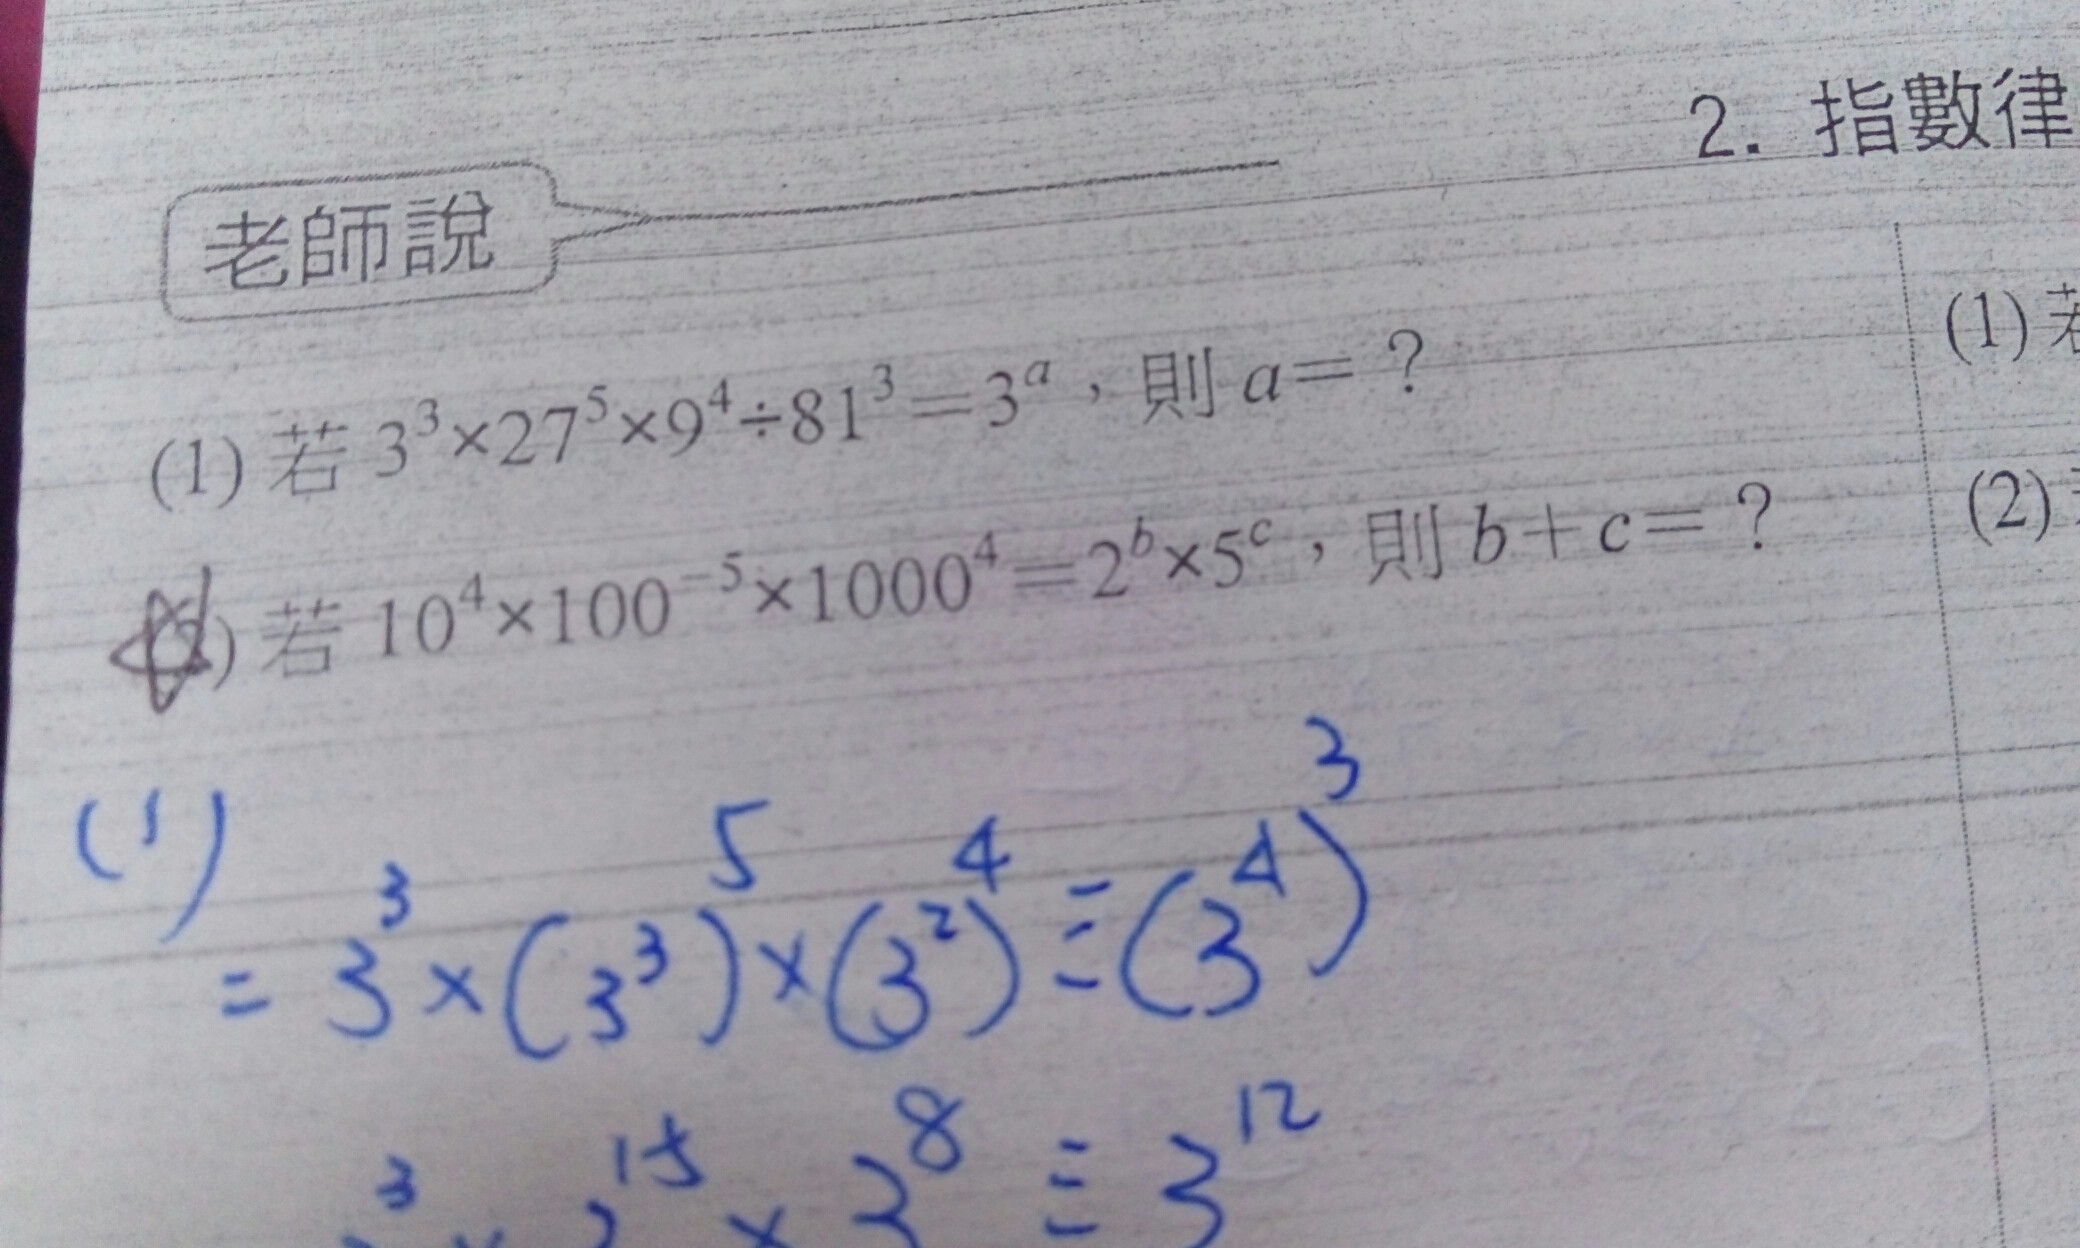 2. 指數律
老師說
(1) 若 3³×27⁵×9⁴÷81³=3ᵃ，則 a=？
(1) 若
) 若 10⁴×100⁻⁵×1000⁴=2ᵇ×5ᶜ，則 b+c=？
(2)
(1)
= 3³×(3³)⁵×(3²)⁴÷(3⁴)³
³ × 3¹⁵ × 3⁸ ÷ 3¹²